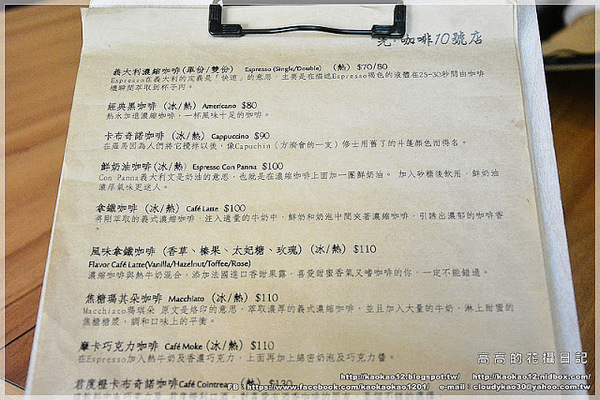 咖啡10號店
義大利濃縮咖啡(單份/雙份) Espresso (Single/Double) (熱) $70/80
Espresso在義大利的定義是「快速」的意思,主要是在描述Espresso褐色的液體在25-30秒間由咖啡
機瞬間萃取到杯子內。
經典黑咖啡 (冰/熱) Americano $80
熱水加進濃縮咖啡,一杯風味十足的咖啡。
卡布奇諾咖啡 (冰/熱) Cappuccino $90
在羅馬因為人們將它攪拌以後,像Capuchin(方濟會的一支)修士用舊了的斗蓬顏色而得名。
鮮奶油咖啡(冰/熱) Espresso Con Panna $100
Con Panna義大利文是奶油的意思,也就是在濃縮咖啡上面加一團鮮奶油。 加入砂糖後飲用,鮮奶油
濃厚氣味更迷人。
拿鐵咖啡 (冰/熱) Café Latte $100
將剛萃取的義式濃縮咖啡,注入適量的牛奶中,鮮奶和奶泡中間夾著濃縮咖啡,引誘出濃郁的咖啡香
。
風味拿鐵咖啡 (香草、榛果、太妃糖、玫瑰) (冰/熱) $110
Flavor Café Latte(Vanilla/Hazelnut/Toffee/Rose)
濃縮咖啡與熱牛奶混合,添加法國進口香甜果露,喜愛甜蜜香氣又嗜咖啡的你,一定不能錯過。
焦糖瑪其朵咖啡 Macchiato (冰/熱) $110
Macchiato瑪琪朵 原文是烙印的意思,萃取濃厚的義式濃縮咖啡,並且加入大量的牛奶,淋上甜蜜的
焦糖糖漿,調和口味上的平衡。
摩卡巧克力咖啡 Café Moke(冰/熱) $110
在Espresso加入熱牛奶及香濃巧克力,上面再加上綿密奶泡及巧克力醬。
君度橙卡布奇諾咖啡Café Cointreau (熱) $130
高高的花攝日記
http://kaokao12.blogspot.tw/ http://kaokao12.nidbox.com/
FB:https://www.facebook.com/kaokaokao1201/ e-mail:cloudykao30@yahoo.com.tw